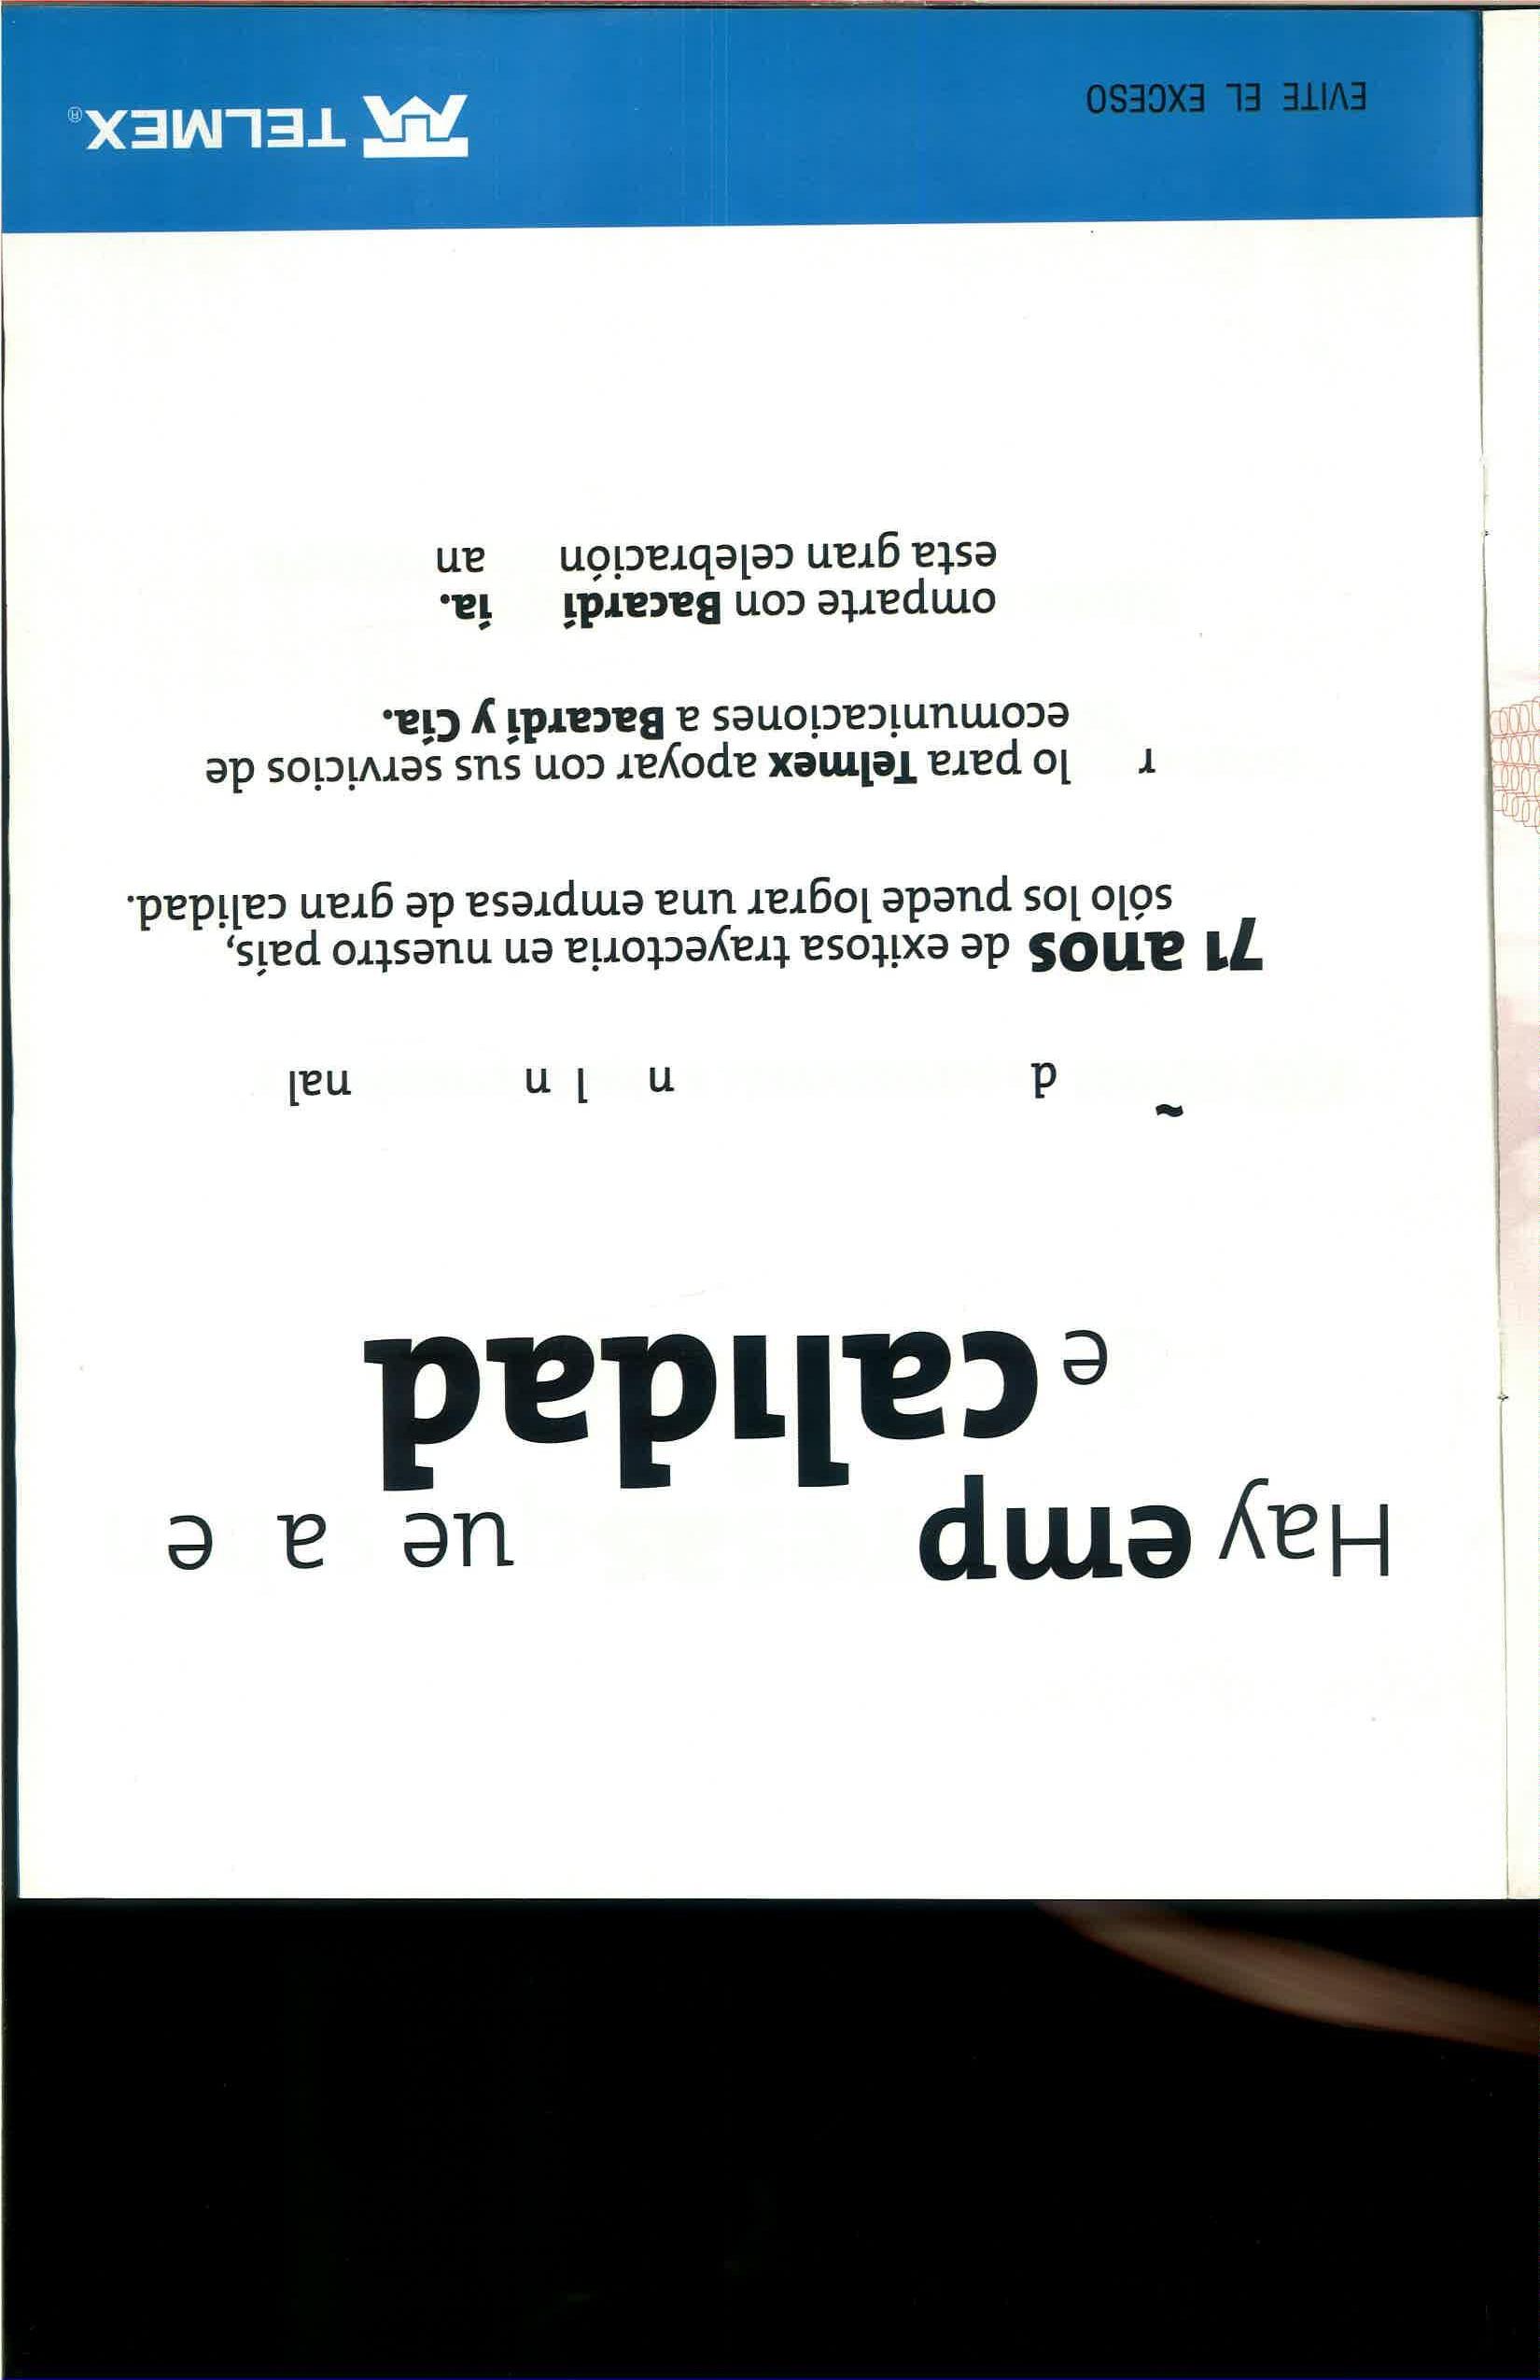 Hay emp ue a e
e calidad
~
d n l n nal
71 anos de exitosa trayectoria en nuestro país,
sólo los puede lograr una empresa de gran calidad.
r lo para Telmex apoyar con sus servicios de
ecomunicaciones a Bacardí y Cía.
omparte con Bacardí ía.
esta gran celebración an
EVITE EL EXCESO
TELMEX®